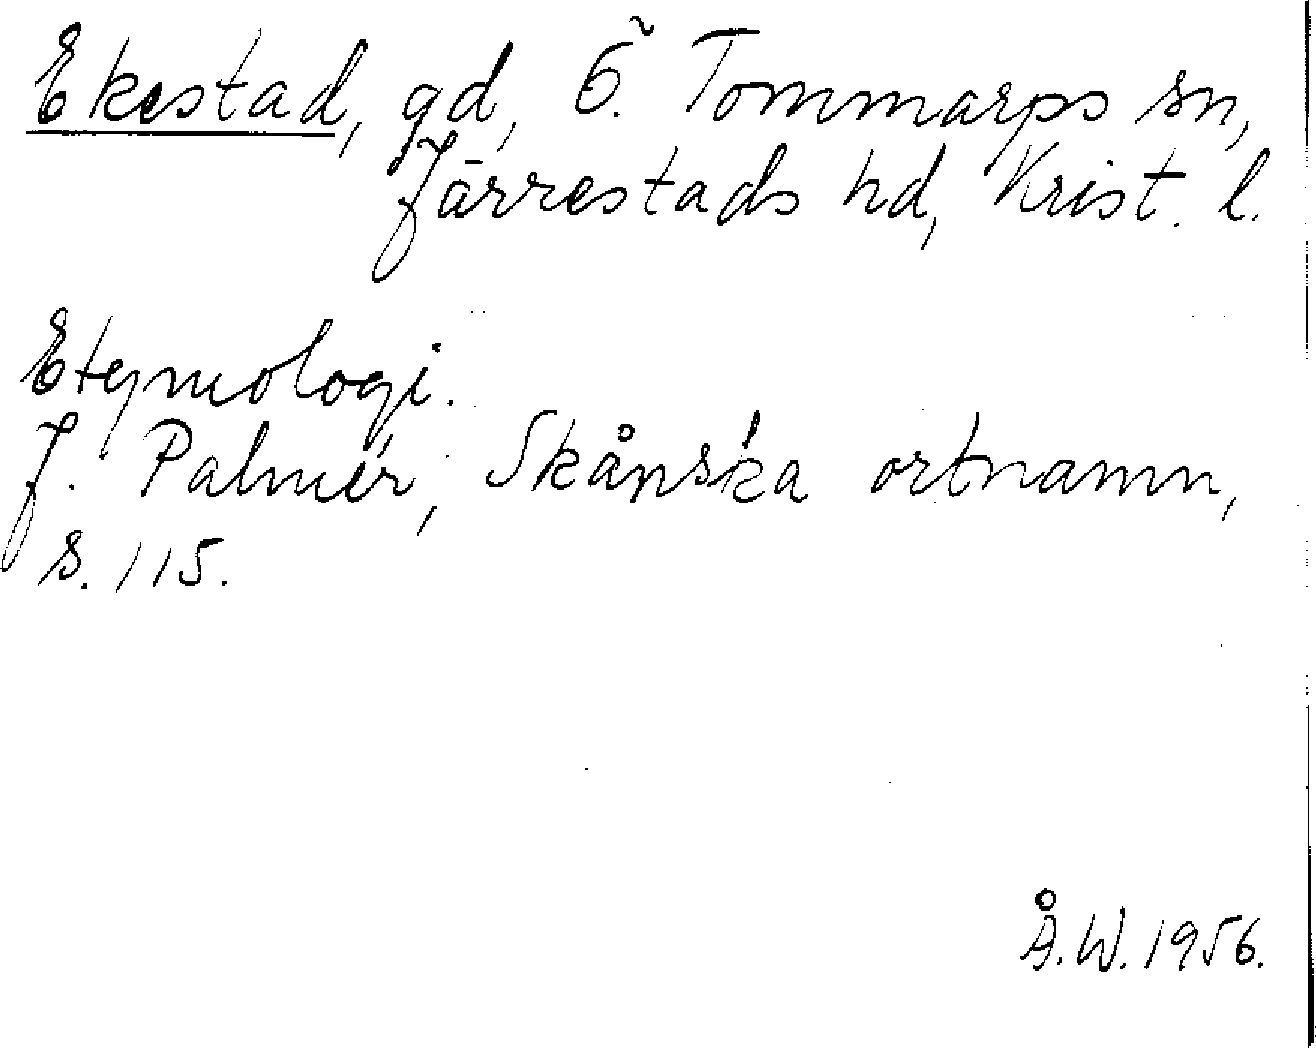 Ekestad, gd, Ö. Tommarps sn,
Järrestads hd, Krist. l.
Etymologi.
J. Palmér, Skånska ortnamn,
s. 115.
Å.W. 1956.